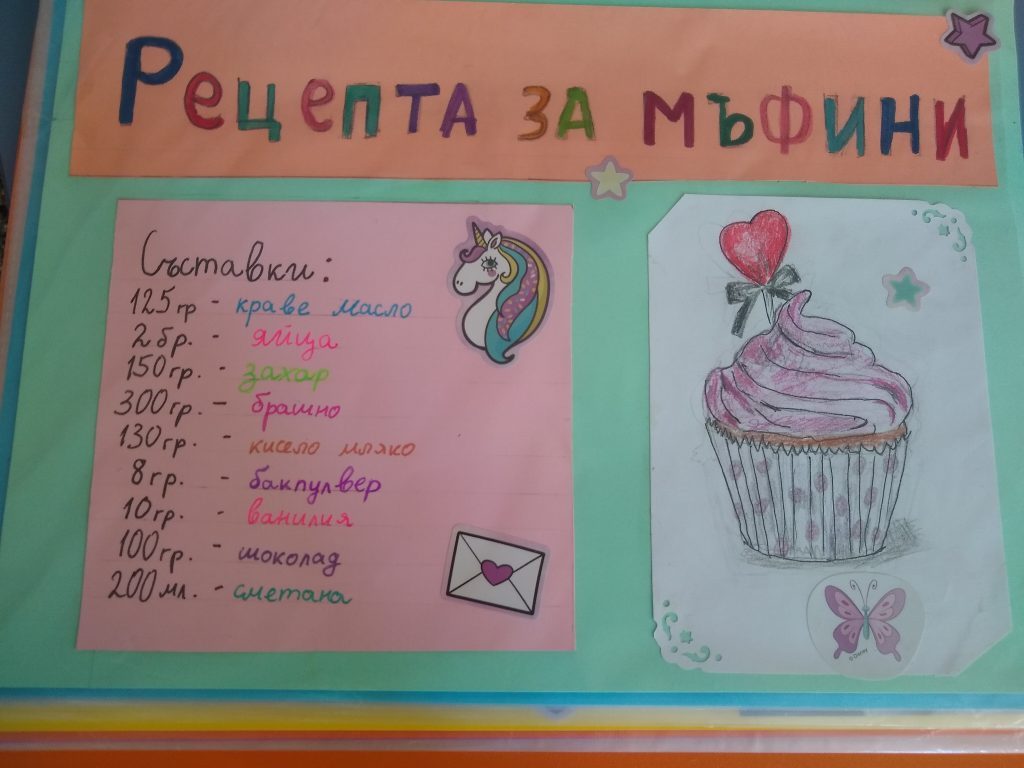 Рецепта за мъфини
Съставки:
125гр - краве масло
2бр. - яйца
150гр. - захар
300гр. - брашно
130гр. - кисело мляко
8гр. - бакпулвер
10гр. - ванилия
100гр. - шоколад
200мл. - сметана
© Disney